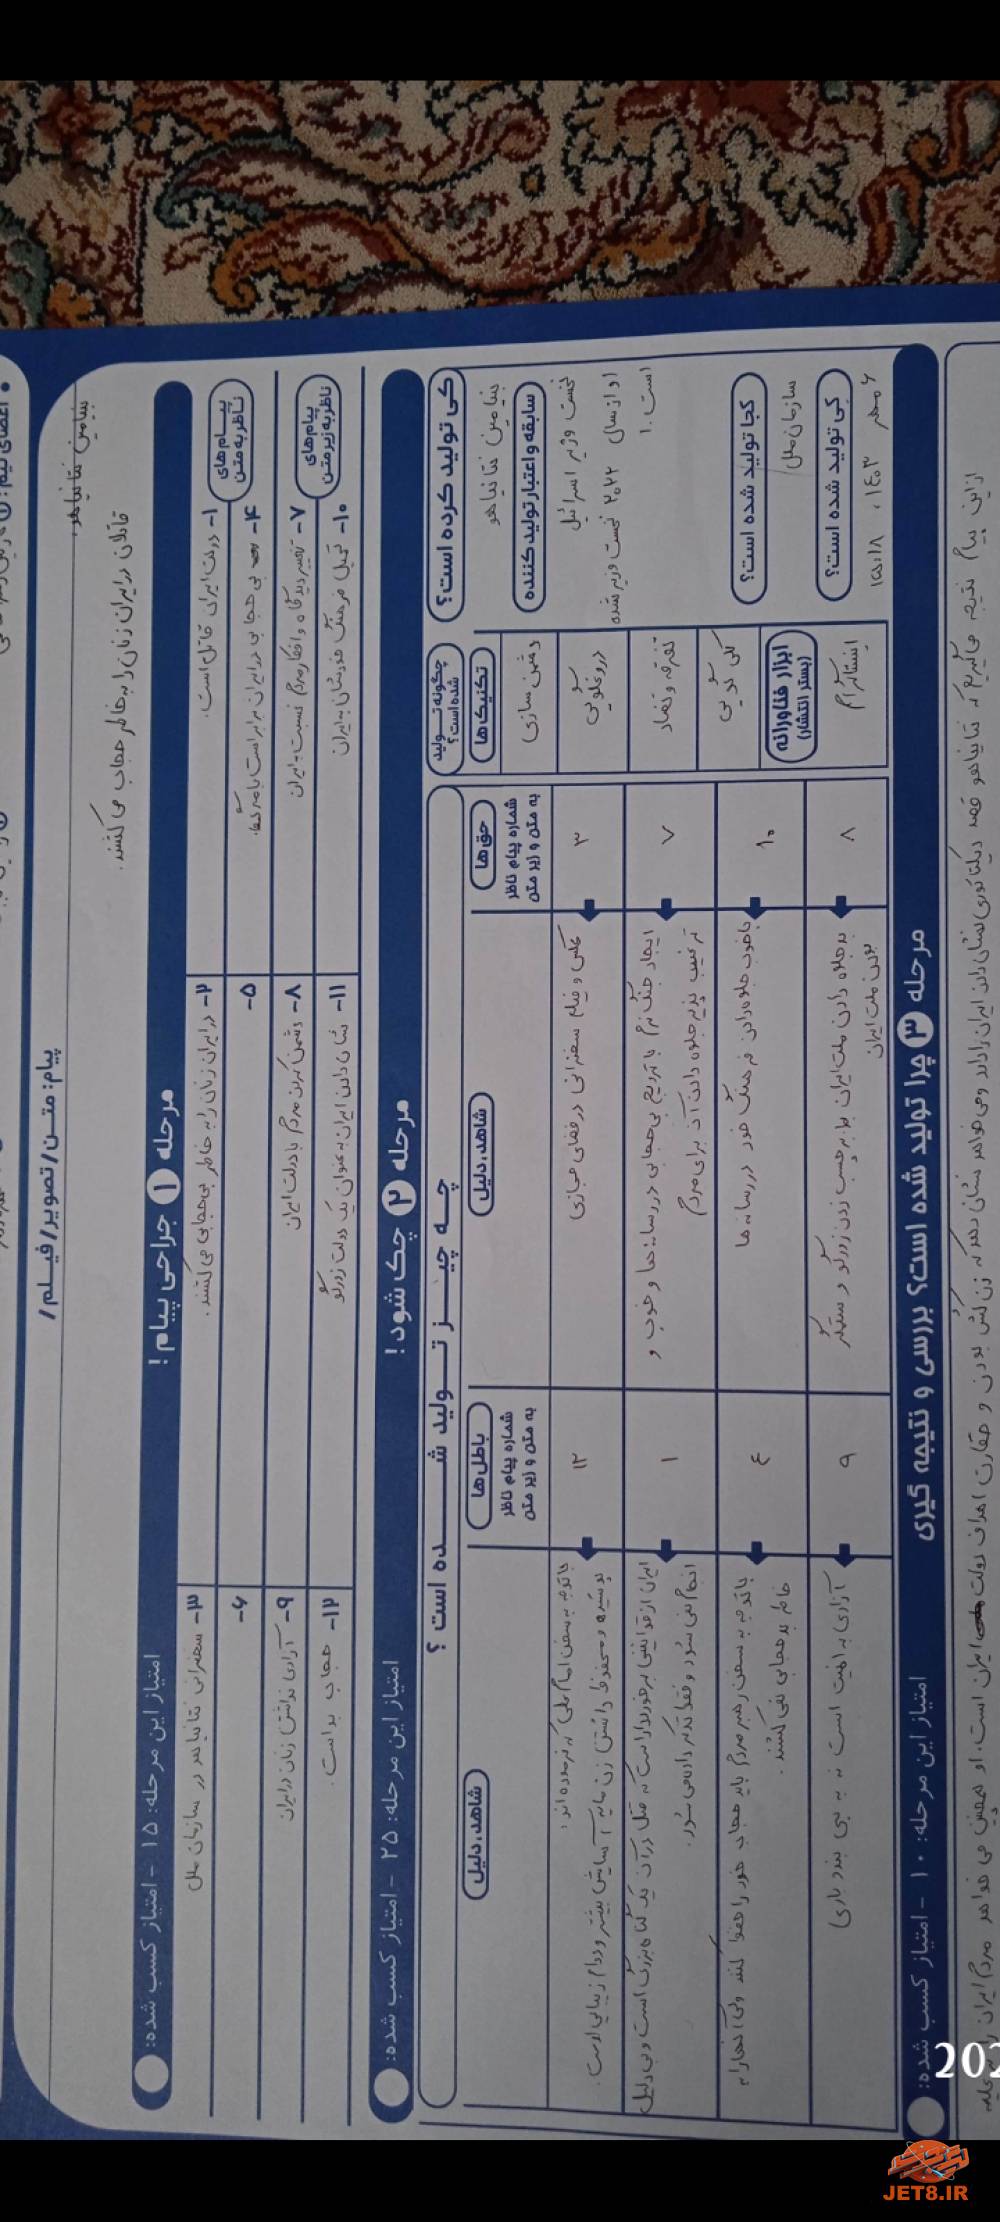 پیام: متن / تصویر / فیلم /
بنیامین نتانیاهو:
قاتلان در ایران زنان را به خاطر حجاب می کشند.
مرحله ۱ جراحی پیام!
امتیاز این مرحله: ۱۵ - امتیاز کسب شده:
پیام‌های ناظر به متن
۱- دولت ایران قاتل است.
۲- در ایران زنان را به خاطر بی حجابی می کشند.
۳- سخنرانی نتانیاهو در سازمان ملل
۴- بی حجابی در ایران برابر است با مرگ
۵-
۶-
پیام‌های ناظر به زیر متن
۷- تغییر دیدگاه و افکار مردم نسبت به ایران
۸- دشمن کردن مردم با دولت ایران
۹- آزادی نداشتن زنان در ایران
۱۰- تحمیل فرهنگ خودشان به ایران
۱۱- نشان دادن ایران به عنوان یک دولت زورگو
۱۲- حجاب بد است.
مرحله ۲ چک شود!
امتیاز این مرحله: ۲۵ - امتیاز کسب شده:
کی تولید کرده است؟
بنیامین نتانیاهو
سابقه و اعتبار تولید کننده
نخست وزیر اسرائیل
او از سال ۲۰۲۲ نخست وزیر شده
است.
کجا تولید شده است؟
سازمان ملل
کی تولید شده است؟
۶ مهر ۱۴۰۳،
چگونه تولید شده است؟
تکنیک‌ها
دشمن سازی
دروغگویی
تفرقه و تضاد
کلی گویی
ابزار فناورانه
(بستر انتشار)
اینستاگرام
چه چیز تولید شده است؟
حق‌ها
شماره پیام ناظر
به متن و زیر متن
شاهد، دلیل
باطل‌ها
شماره پیام ناظر
به متن و زیر متن
شاهد، دلیل
۳
عکس و فیلم سخنرانی در فضای مجازی
۱۲
با توجه به سخن امام علی که فرموده اند:
پوشیده و محفوظ داشتن زن مایه آسایش بیشتر و دوام زیبایی اوست.
۷
ایجاد جنگ نرم با ترویج بی حجابی در رسانه ها و خوب و
ترغیب پذیر جلوه دادن آن برای مردم
۱
ایران از قوانینی برخوردار است که قتل در آن یک گناه بزرگ است و بی دلیل
انجام نمی شود و فقط تذکر داده می شود.
۱۰
با خوب جلوه دادن فرهنگ خود در رسانه ها
۴
با توجه به سخن رهبر مردم باید حجاب خود را حفظ کنند ولی آنها را به
خاطر بد حجابی نمی کشند.
۸
بد جلوه دادن ملت ایران با برچسب زدن زورگو و ستمگر
بودن ملت ایران
۹
آزادی به امنیت است نه به بی بند و باری
مرحله ۳ چرا تولید شده است؟ بررسی و نتیجه گیری
امتیاز این مرحله: ۱۰ - امتیاز کسب شده:
از این پیام نتیجه می گیریم که نتانیاهو قصد دیکتاتوری نشان دادن ایران را دارد و می خواهد نشان دهد که زن کش بودن و حقارت اهداف دولت ایران است. او همچنین می خواهد مردم ایران را
202
JET8.IR